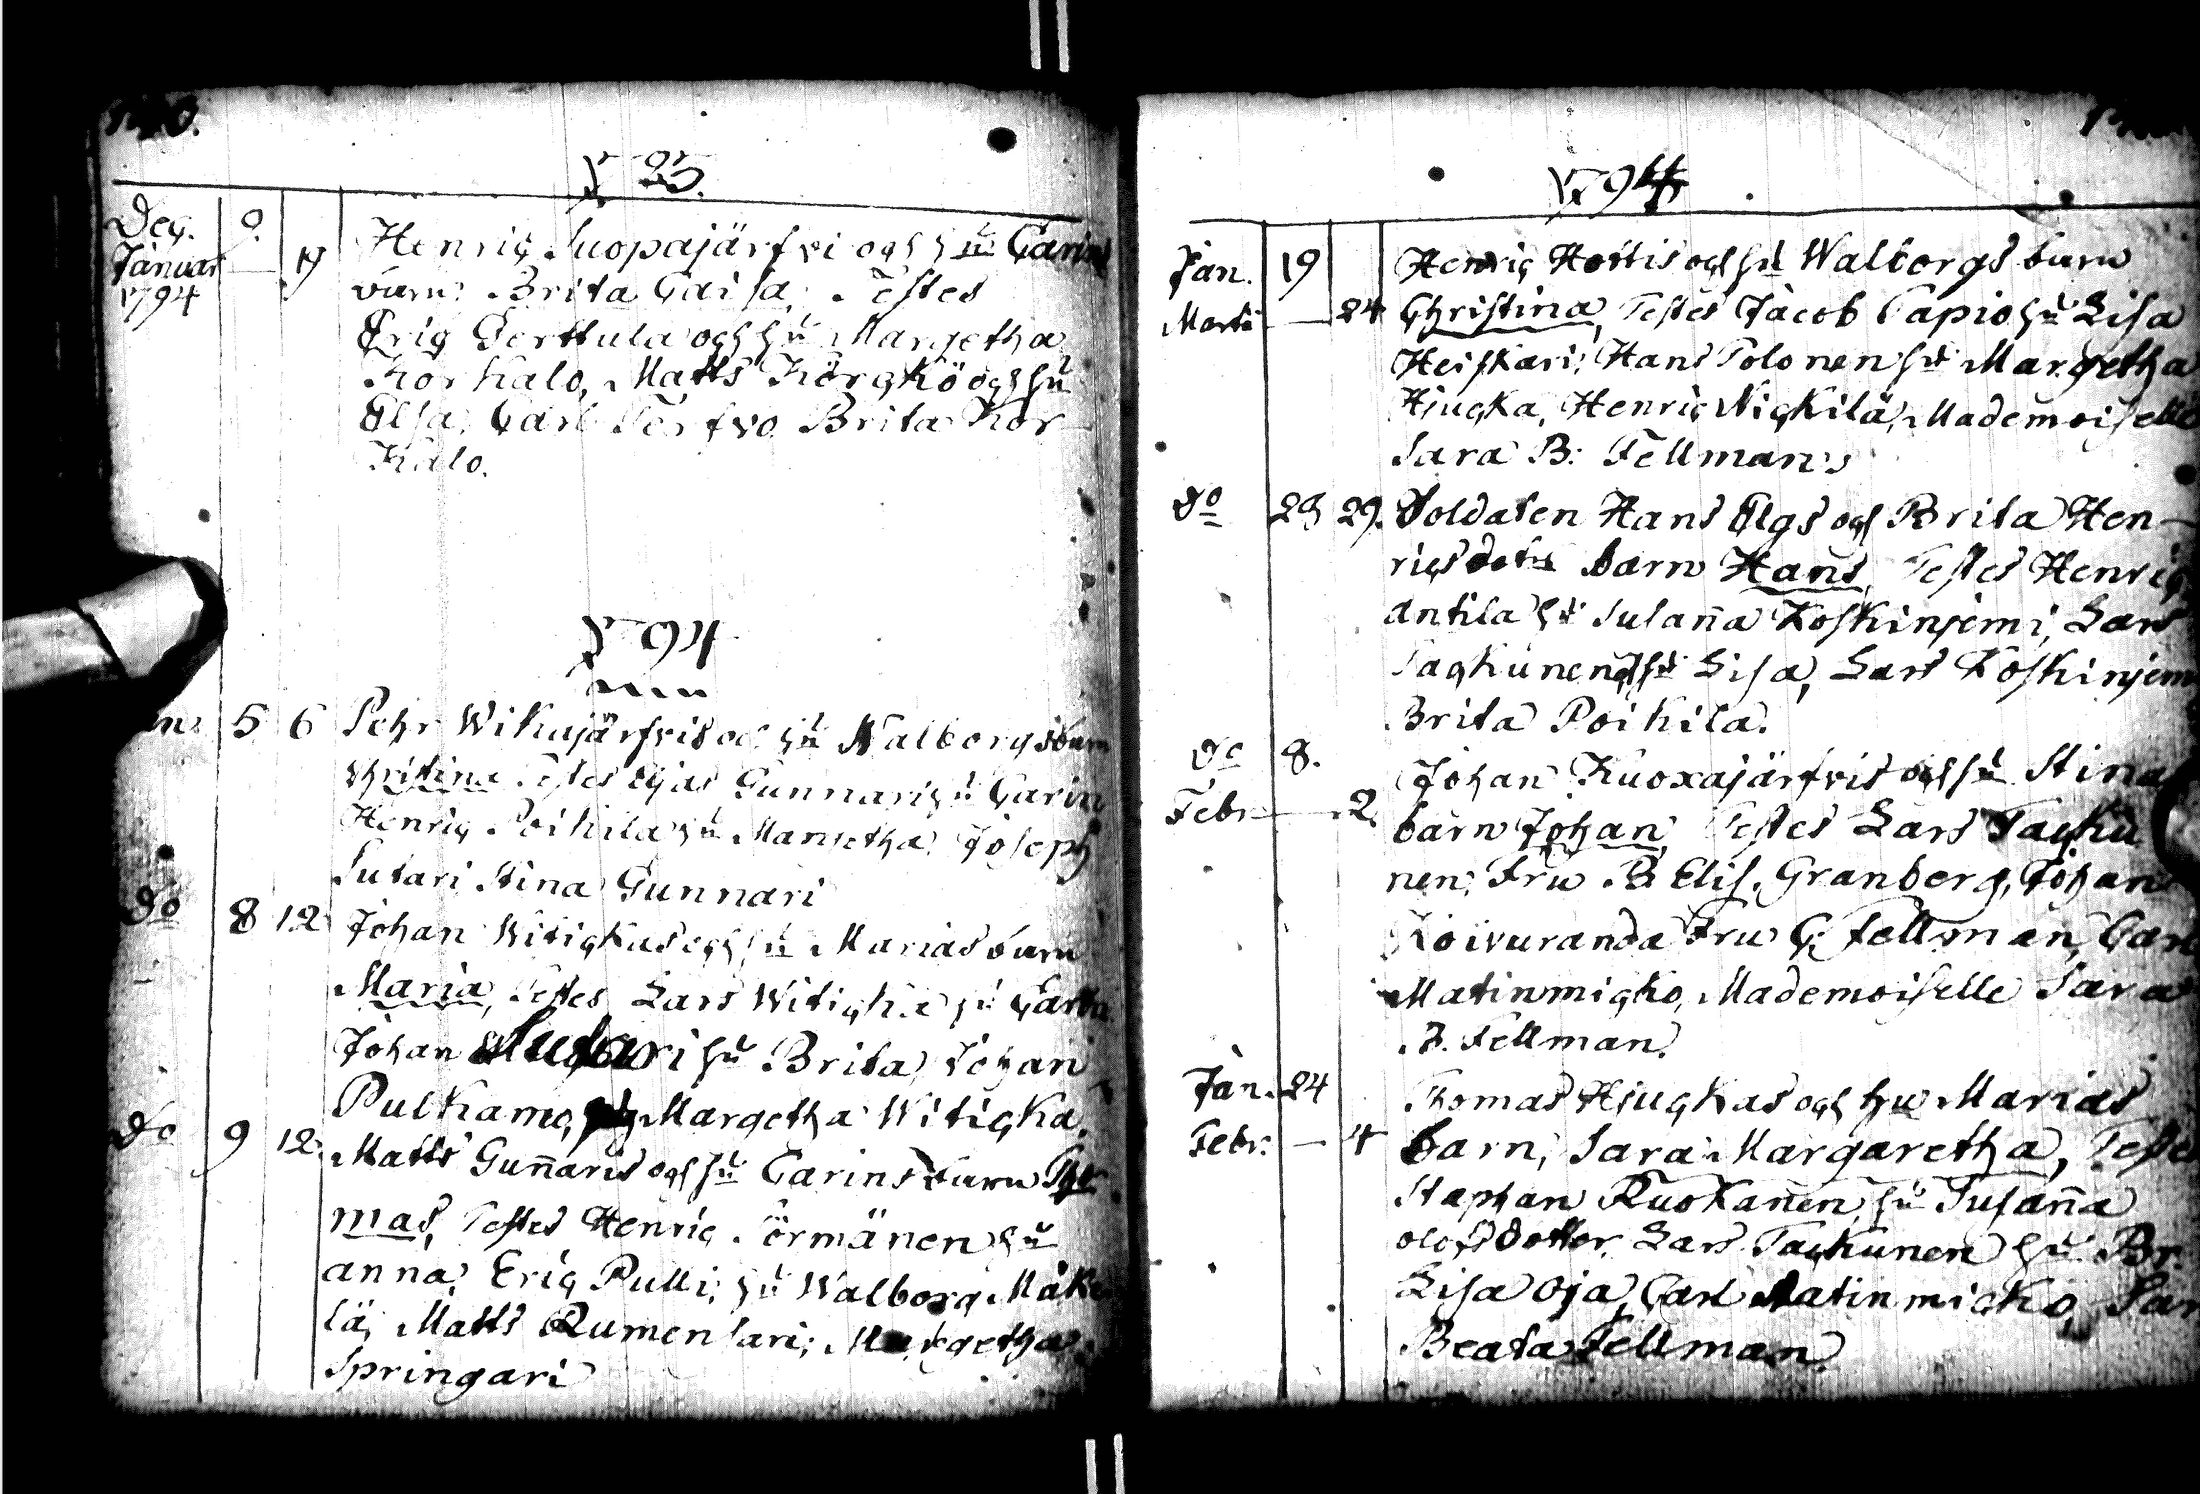 Dec. 9.
Januar 17
1794
Henric Suopajärfvi och hu Carins
barn Brita Caisa, Testes
Eric Perttula och hu Margetha
Korkalo, Matts Körckö och hu
Elsa, Carl Törfvo Brita Kor
kalo.
1794
5 6 Pehr Wikajärfvis och hu Walborgs barn
Christina Testes Gunnari hu Carin
Henric Poikila hu Margetha Joseph
Sutari Stina Gunnari
do 8 12 Johan Witickas och hu Marias barn
Maria, Testes Lars Witicka hu
Johan Sutari hu Brita Johan
Pulkamo, Margetha Witicka.
do 9 12. Matts Guñaris och hu Carins barn Tho
mas, Testes Henric Törmänen hu
anna, Eric Pulli, hu Walborg Mäke
lä, Matts Rumensari; Margetha
Springari
1794
Jan. 19 Henric Hottis och hu Walborgs barn
Marti — 24 Christina, Testes Jacob Tapio hu Lisa
Heiskari; Hans Tolonen hu Margetha
Hiucka, Henric Nickilä, Mademoiselle
Sara B: Fellman
do 29 29. Soldaten Hans Elgs och Brita Hen-
ricsdotrs barn Hans, Testes Henric
Antila hu Susaña Koskinjemi, Lars
Tackunen och hu Lisa, Lars Koskinjemi
Brita Poikila.
do 8. Johan Kuoxajärfvis och hu Stina
Febr — 2 barn Johan, Testes Lars Tacku
nen, Fru B Elis. Granberg, Johan
Koivuranda Fru C; Fellman, Carl
Matinmicko, Mademoiselle Sara
B. Fellman.
Jan. 24 Thomas Hjuckas och hu Marias
Febr. — 4 barn, Sara Margaretha, Testes
Staphan Ruokanen, hu Susaña
olofsdotter Lars Tackunen hu Br.
Lisa Oja, Carl Matinmicko, Sar
Beata Fellman.